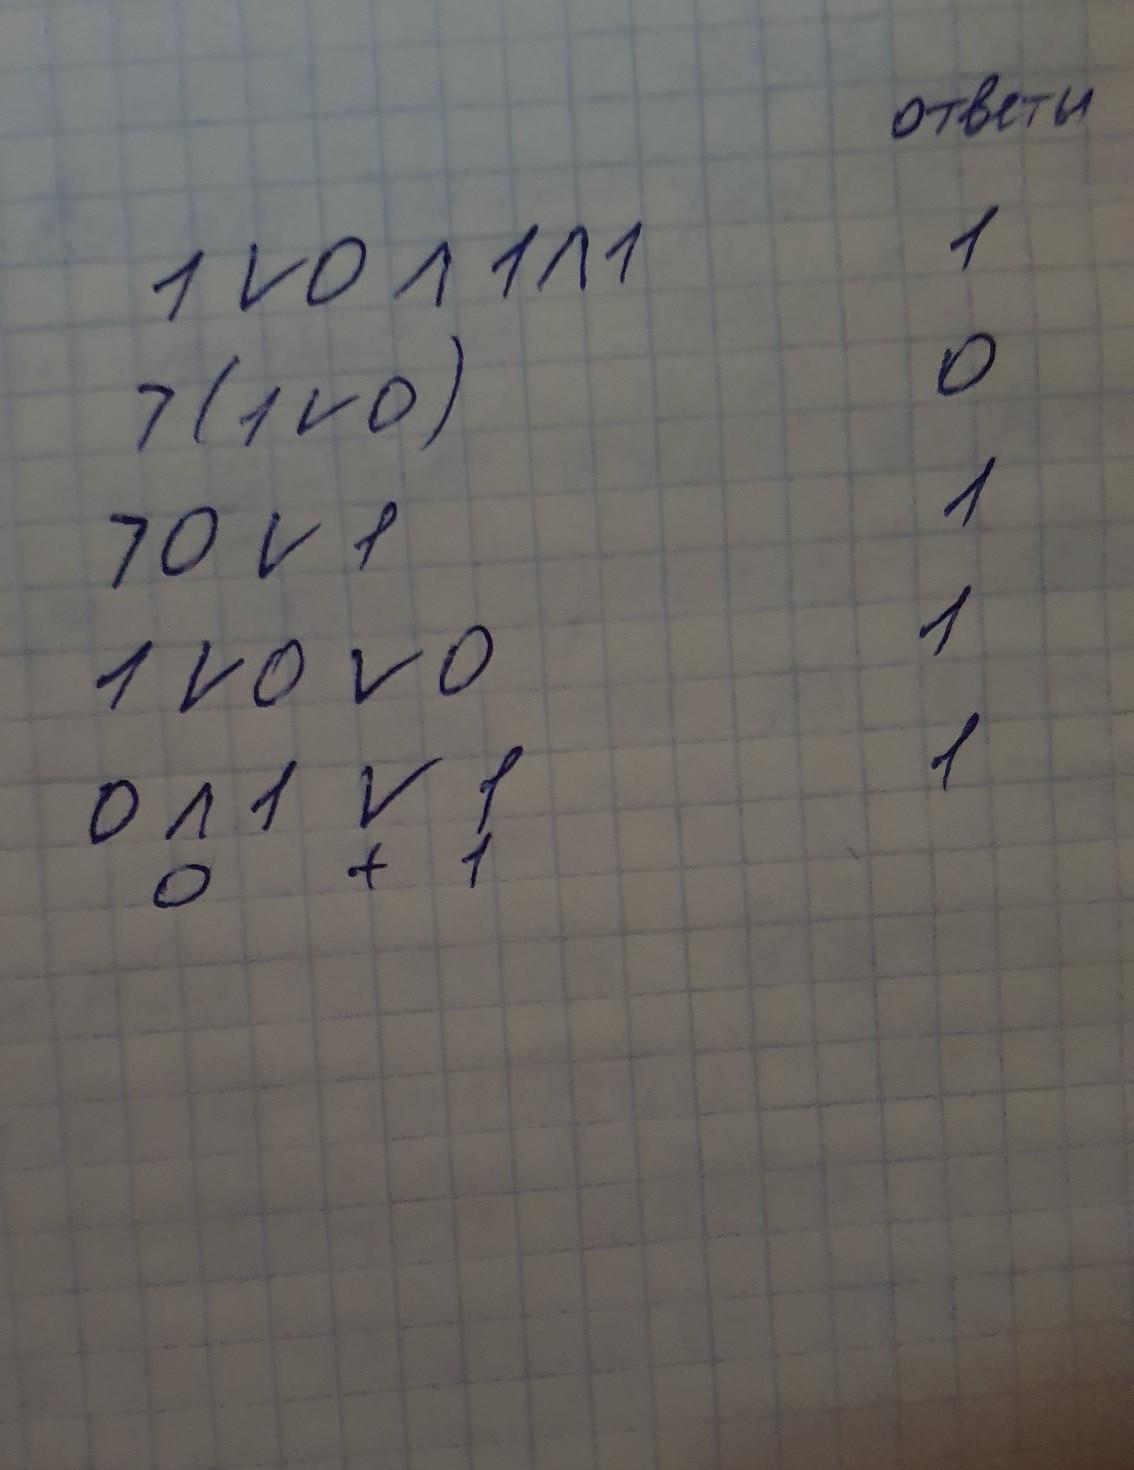 ответы
1 ∨ 0 ∧ 1 ∧ 1 1
¬(1 ∨ 0) 0
¬0 ∨ 1 1
1 ∨ 0 ∨ 0 1
0 ∧ 1 ∨ 1 1
0 + 1